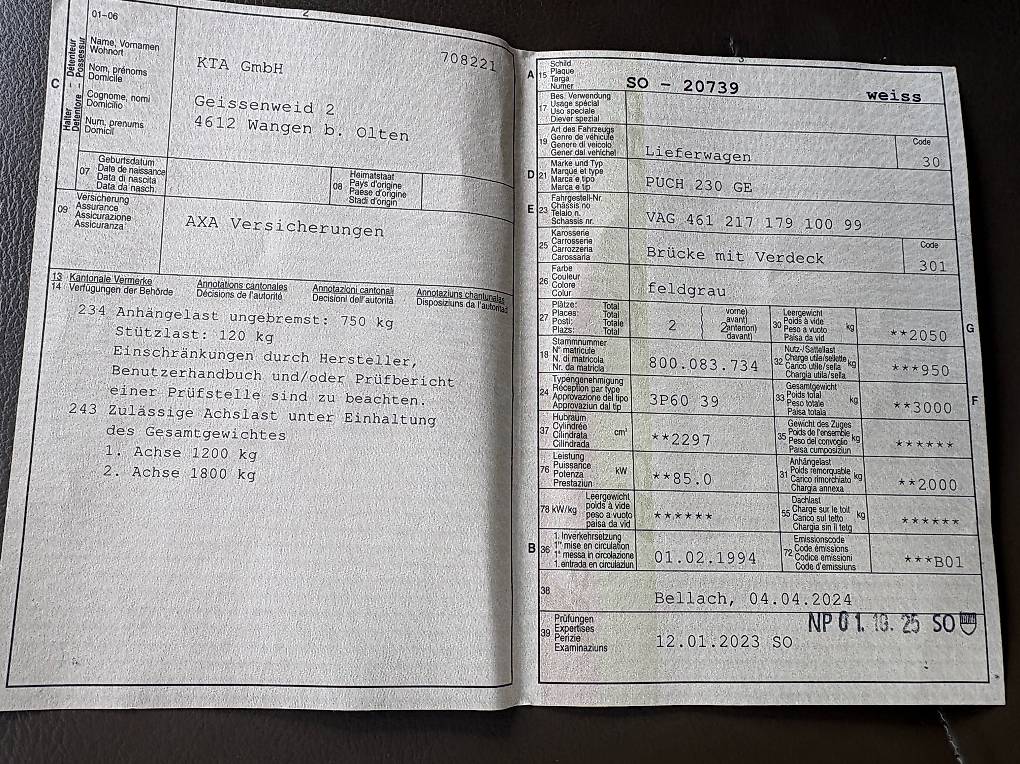 2
C
Halter - Détenteur
Detentore - Possessur
01-06
Name, Vornamen
Wohnort
Nom, prénoms
Domicile
Cognome, nomi
Domicilio
Num, prenums
Domicil
708221
KTA GmbH
Geissenweid 2
4612 Wangen b. Olten
07
Geburtsdatum
Date de naissance
Data di nascita
Data da nasch.
08
Heimatstaat
Pays d'origine
Paese d'origine
Stadi d'origin
09
Versicherung
Assurance
Assicurazione
Assicuranza
AXA Versicherungen
13 Kantonale Vermerke Annotations cantonales Annotazioni cantonali Annotaziuns chantunalas
14 Verfügungen der Behörde Décisions de l'autorité Decisioni dell'autorità Disposiziuns da l'autoritad
234 Anhängelast ungebremst: 750 kg
Stützlast: 120 kg
Einschränkungen durch Hersteller,
Benutzerhandbuch und/oder Prüfbericht
einer Prüfstelle sind zu beachten.
243 Zulässige Achslast unter Einhaltung
des Gesamtgewichtes
1. Achse 1200 kg
2. Achse 1800 kg
3
A 15
Schild
Plaque
Targa
Numer
SO - 20739 weiss
17
Bes. Verwendung
Usage spécial
Uso speciale
Diever spezial
19
Art des Fahrzeugs
Genre de véhicule
Genere di veicolo
Gener dal vehichel
Lieferwagen
Code
30
D 21
Marke und Typ
Marque et type
Marca e tipo
Marca e tip
PUCH 230 GE
E 23
Fahrgestell-Nr.
Châssis no
Telaio n.
Schassis nr.
VAG 461 217 179 100 99
25
Karosserie
Carrosserie
Carrozzeria
Carossaria
Brücke mit Verdeck
Code
301
26
Farbe
Couleur
Colore
Colur
feldgrau
27
Plätze: Total
Places: Total
Posti: Totale
Plazs: Total
2
vorne)
avant)
2 anteriori)
davant)
30
Leergewicht
Poids à vide
Peso a vuoto
Paisa da vid
kg
**2050
G
18
Stammnummer
N° matricule
N. di matricola
Nr. da matricla
800.083.734
32
Nutz-/Sattellast
Charge utile/sellette
Carico utile/sella
Chargia utila/sella
kg
***950
24
Typengenehmigung
Réception par type
Approvazione del tipo
Approvaziun dal tip
3P60 39
33
Gesamtgewicht
Poids total
Peso totale
Paisa totala
kg
**3000
F
37
Hubraum
Cylindrée
Cilindrata
Cilindrada
cm³
**2297
35
Gewicht des Zuges
Poids de l'ensemble
Peso del convoglio
Paisa cumposiziun
kg
******
76
Leistung
Puissance
Potenza
Prestaziun
kW
**85.0
31
Anhängelast
Poids remorquable
Carico rimorchiato
Chargia annexa
kg
**2000
78 kW/kg
Leergewicht
poids à vide
peso a vuoto
paisa da vid
******
55
Dachlast
Charge sur le toit
Carico sul tetto
Chargia sin il tetg
kg
******
B 36
1. Inverkehrsetzung
1re mise en circulation
1a messa in circolazione
1. entrada en circulaziun
01.02.1994
72
Emissionscode
Code émissions
Codice emissioni
Code d'emissiuns
***B01
38
Bellach, 04.04.2024
39
Prüfungen
Expertises
Perizie
Examinaziuns
NP 01. 10. 25 SO
12.01.2023 SO